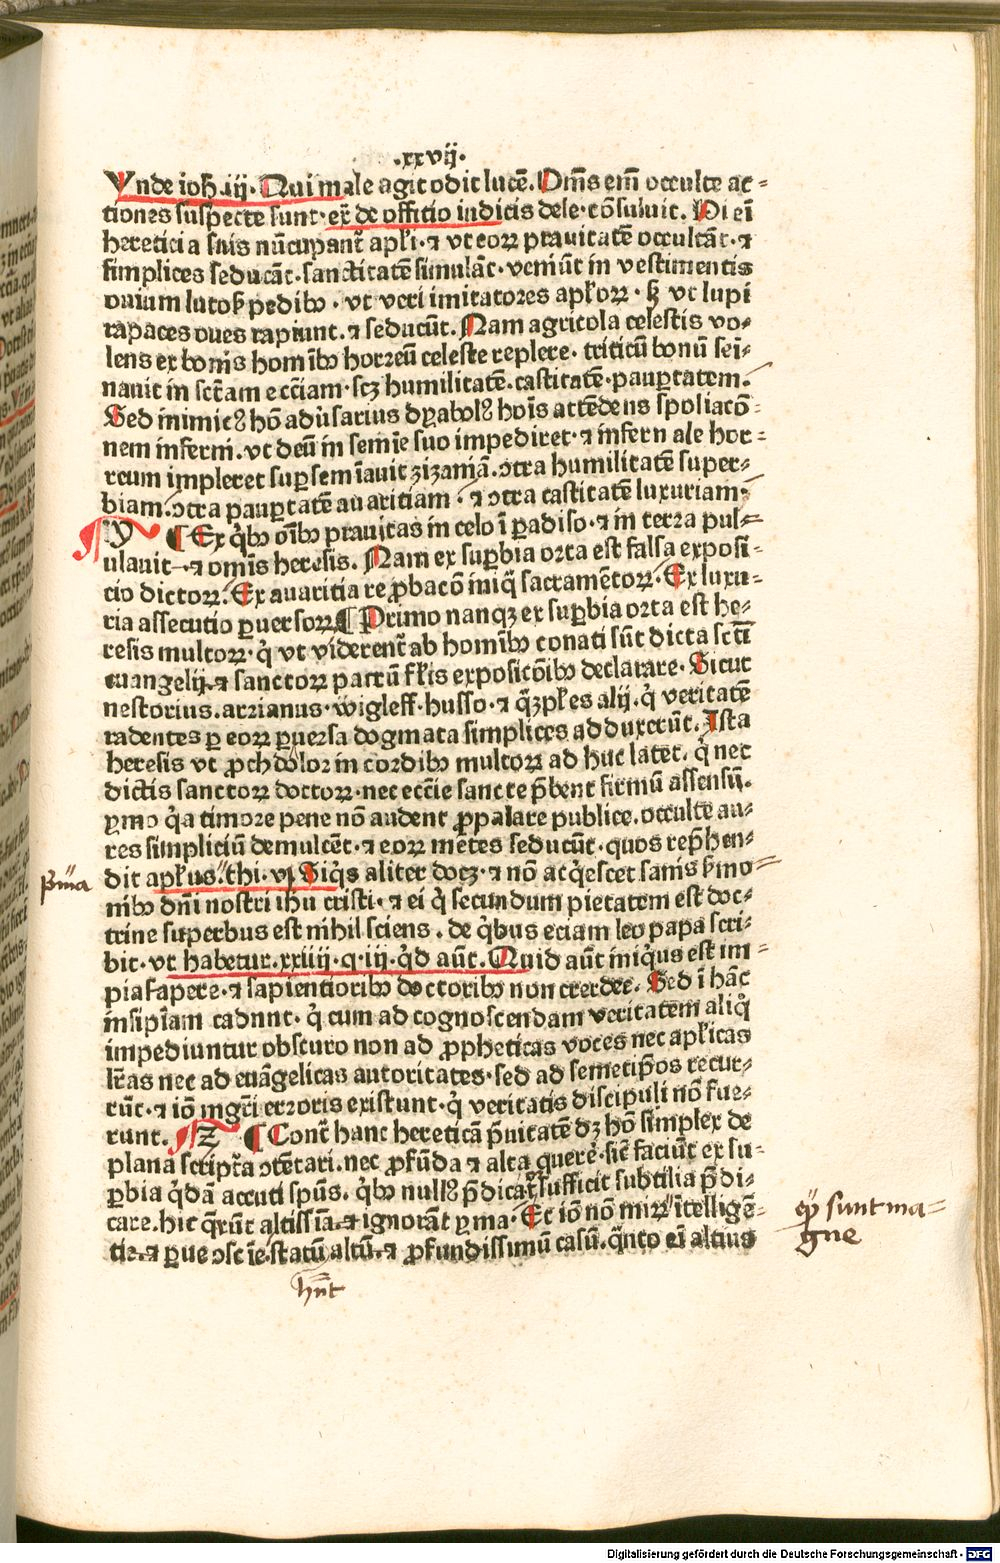 .xxvij.
Vnde ioh̄ .iij. Qui male agit odit lucē. Om̄s em̄ occulte ac⸗
tiones suspecte sunt. ex̄ de offitio iudicis dele. cōsuluit. Hi eī
heretici a suis nūcupant᷑ apłi. ⁊ vt eoꝝ prauitatē occultāt. ⁊
simplices seducāt. sanctitatē simulāt. veniūt in vestimentis
ouium lutoß pedibꝰ . vt veri imitatores apłoꝝ . ß vt lupi
rapaces oues rapiunt. ⁊ seducūt. Nam agricola celestis vo⸗
lens ex bonis homībꝰ horreū celeste replere. triticū bonū sei⸗
nauit in sct̄am ecc̄iam. scꝫ humilitatē. castitatē. paup̄tatem.
Sed inimicꝰ hō adūsarius dyabolꝰ hoīs attēdens spoliacō⸗
nem inferni. vt deū in semīe suo impediret. ⁊ infernale hor⸗
reum impleret sup̄semīauit zizaniā. ꝯtra humilitatē super⸗
biam. ꝯtra paup̄tatē auaritiam . ⁊ ꝯtra castitatē luxuriam.
Y ¶ Ex q̇bꝰ oībꝰ prauitas in celo ī ꝑadiso. ⁊ in terra pul⸗
ulauit. ⁊ omīs heresis. Nam ex sup̄bia orta est falsa exposi⸗
cio dictoꝝ. Ex auaritia reꝓbacō iniq̄ sacramētoꝝ. Ex luxu⸗
ria assecutio ꝑuersoꝝ ¶ Primo nanqꝫ ex sup̄bia orta est he⸗
resis multoꝝ. q̇ vt viderent᷑ ab homībꝰ conati sūt dicta sctī
euangelij. ⁊ sanctoꝝ patrū fłis expositōibꝰ declarare. Sicut
nestorius. arrianus. wigleff. husso. ⁊ q̄ꝫpłes alij. q̇ veritatē
radentes ꝑ eoꝝ ꝑuersa dogmata simplices adduxerūt. Ista
heresis vt ꝓch dolor in cordibꝰ multoꝝ ad huc latet. q̇ nec
dictis sanctoꝝ doctoꝝ. nec ecc̄ie sancte p̄bent firmū assensū.
ymo q̇a timore pene nō audent ꝓpalare publice. occulte au⸗
res simpliciū demulcēt. ⁊ eoꝝ mētes seducūt. quos rep̄hen⸗
p̄ima
dit apłus. thi. vj. Siq̇s aliter docꝫ. ⁊ nō acq̇escet sanis ẜmo⸗
nibꝰ dn̄i nostri ihu cristi. ⁊ ei q̇ secundum pietatem est doc⸗
trine superbus est nihil sciens . de q̇bus eciam leo papa scri⸗
bit. vt habetur. xxiiij. q. iij. q̇d aūt. Quid aūt iniq̇us est im⸗
pia sapere. ⁊ sapientioribꝰ doctoribꝰ non crerdee. Sed ī hāc
insipīam cadnnt. q̇ cum ad cognoscendam veritatem aliq̇
impediuntur obscuro non ad ꝓpheticas voces nec apłicas
lr̄as nec ad euāgelicas autoritates. sed ad semetip̄os recur⸗
rūt. ⁊ iō mgr̄i erroris existunt. q̇ veritatis discipuli nō fue⸗
runt. Z ¶ Cont᷑ hanc hereticā p̄uitatē dꝫ hō simplex de
plana script̄a ꝯtētari. nec ꝓfūda ⁊ alta querē. sic̄ faciūt ex su⸗
ꝑbia q̇dā accuti sp̄us. q̇bꝰ nullꝰ p̄dicat᷑ sufficit subtilia p̄di⸗
care. hic q̄rūt altissīa. ⁊ ignorāt yma. Et iō nō miꝝ ītelligē⸗
tie. ⁊ ꝑue ꝯsc īe. statū altū. ⁊ ꝓfundissimū casū. q̄nto eī altius
sunt ma⸗
gne
hn̄t
Digitalisierung gefördert durch die Deutsche Forschungsgemeinschaft - DFG